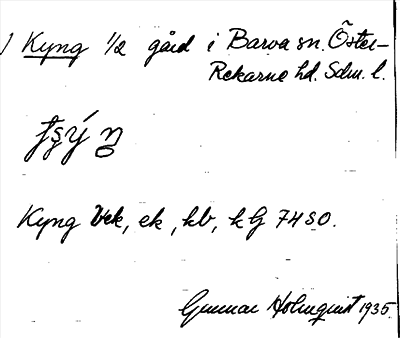 ) Kyng 1/2 gård i Barva sn. Öster-
Rekarne hd. Sdm. l.
Kyng Vek, ek, kb, kG 7480.
Gunnar Holmquist 1935.